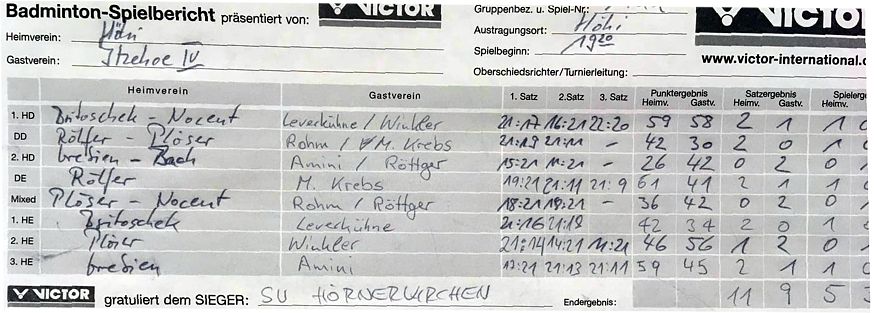 Badminton-Spielbericht präsentiert von: VICTOR
Gruppenbez. u. Spiel-Nr.:
VICTOR
Heimverein: Höhi
Austragungsort: Höhi
Gastverein: Itzehoe IV
Spielbeginn: 1920
www.victor-international.c
Oberschiedsrichter/Turnierleitung:
Heimverein Gastverein 1. Satz 2. Satz 3. Satz Punktergebnis Satzergebnis Spielerge
Heimv. Gastv. Heimv. Gastv. Heimv.
1. HD Britoschek - Nocent Leverkühne / Winkler 21:17 16:21 22:20 59 58 2 1 1 0
DD Rölfer - Plöser Rohm / M. Krebs 21:19 21:11 - 42 30 2 0 1 0
2. HD bresien - Bach Amini / Röttger 15:21 11:21 - 26 42 0 2 0
DE Rölfer M. Krebs 19:21 21:11 21:9 61 41 2 1 1 0
Mixed Plöser - Nocent Rohm / Röttger 18:21 18:21 - 36 42 0 2 0 1
1. HE Britoschek Leverkühne 21:16 21:18 42 34 2 0 1
2. HE Plöser Winkler 21:14 14:21 11:21 46 56 1 2 0 1
3. HE bresien Amini 17:21 21:13 21:11 59 45 2 1 1 0
VICTOR gratuliert dem SIEGER: SV HÖRNERKIRCHEN Endergebnis: 11 9 5 3